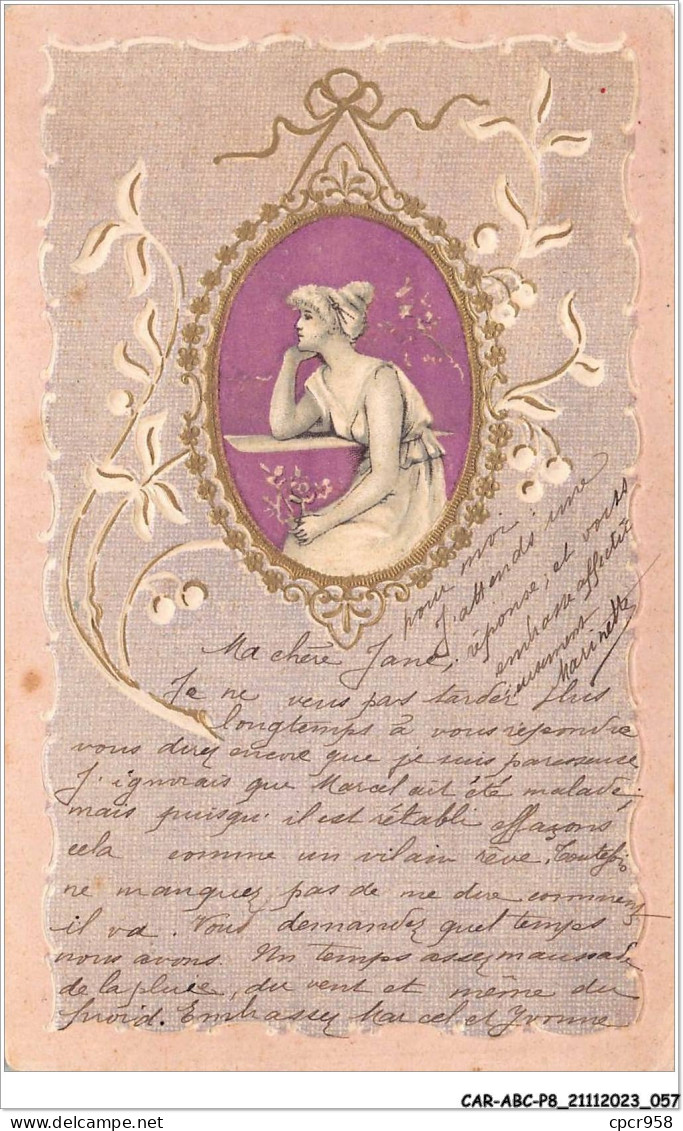 Ma chère Jane,
Je ne veus pas tarder plus
longtemps à vous repondre
vous direz encore que je suis paresseuse
J'ignorais que Marcel ait été malade,
mais puisqu'il est rétabli effaçons
cela comme un vilain rêve. Toutefois
ne manquez pas de me dire comment
il va. Vous demandez quel temps
nous avons. Un temps assez maussade
de la pluie, du vent et même du
froid. Embrassez Marcel et Yvonne
pour moi.
J'attends une
réponse, et vous
embrasse affectu
eusement
Marinette
CAR-ABC-P8_21112023_057
cpcr958